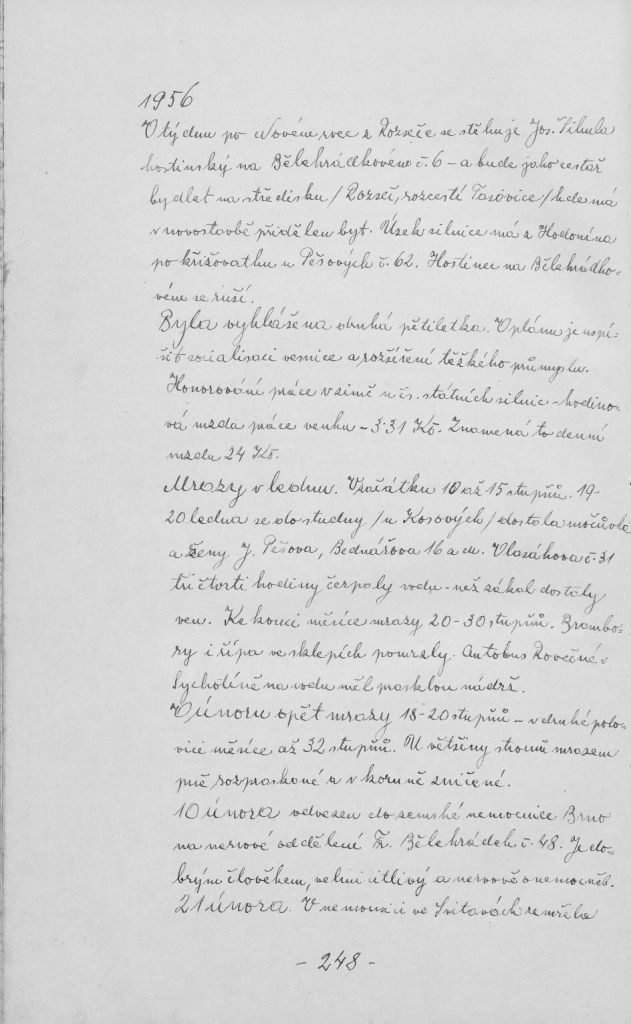 1956
V týdnu po Novém roce z Rozseče se stěhuje Jos. Sihula
hostinský na Bělehrádkovém č. 6 - a bude jako cestář
bydlet na středisku / Rozseč, rozcestí Tasovice / kde má
v novostavbě přidělen byt. Úsek silnice má z Hodonína
po křižovatku u Pešových č. 62. Hostinec na Bělehrádko-
vém se ruší.
Byla vyhlášena druhá pětiletka. V plánu je uspí-
šit socialisaci vesnice a rozšíření těžkého průmyslu.
Honorování práce v zimě u čs. státních silnic - hodino-
vá mzda práce venku - 3·31 Kč. Znamená to denní
mzdu 24 Kč.
Mrazy v lednu. V začátku 10 až 15 stupňů. 19-
20 ledna se do studny / u Kosových / dostala močůvka
a ženy J. Pešova, Bednářova 16 a m. Vlasákova č. 31
tři čtvrti hodiny čerpaly vodu - než zákal dostaly
ven. Ke konci měsíce mrazy 20-30 stupňů. Brambo-
ry i řípa ve sklepích pomrzly. Autobus Rovečné v
Sychotíně na vodu měl prasklou nádrž.
V únoru opět mrazy 18-20 stupňů - v druhé polo-
vici měsíce až 32 stupňů. U většiny stromů mrazem
pně rozpraskané a v koruně zničené.
10 února odvezen do zemské nemocnice Brno
na nervové oddělení Fr. Bělehrádek č. 48. Je do-
brým člověkem, velmi citlivý a nervově onemocněl.
21 února. V nemocnici ve Svitavách zemřela
- 248 -